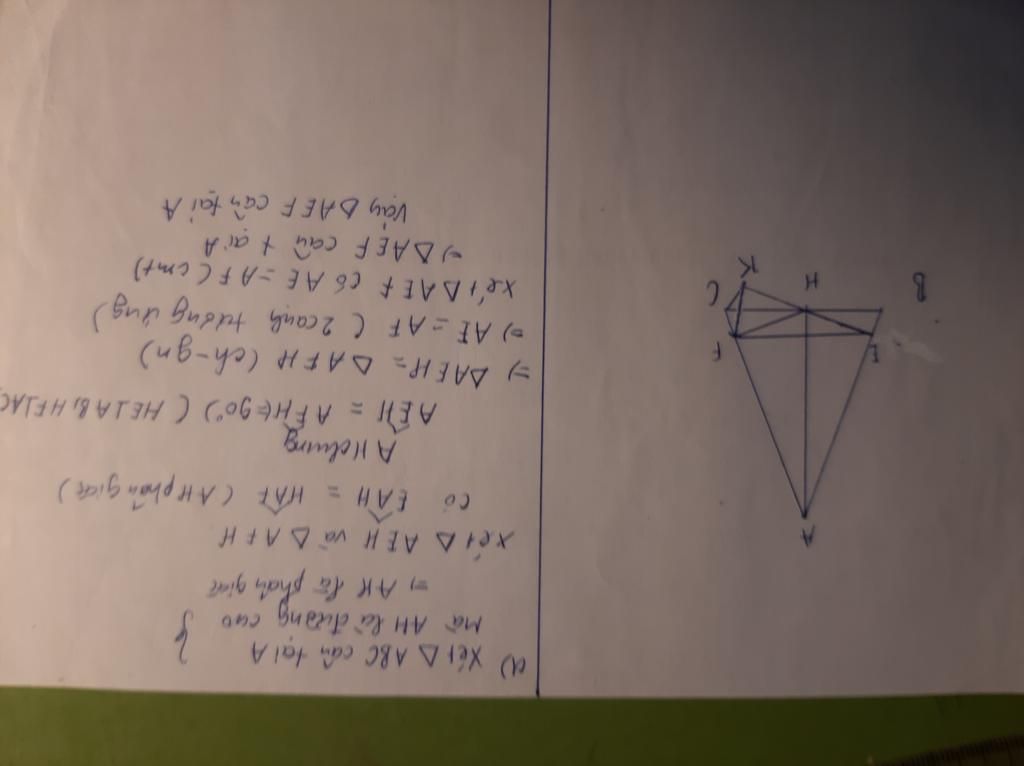 A
E
F
B
H
C
K
a) Xét Δ ABC cân tại A }
mà AH là đường cao
=> AH là phân giác
Xét Δ AEH và Δ AFH
có EAH = HAF (AH phân giác)
AH chung
AEH = AFH (=90°) (HE⊥AB, HF⊥AC
=> ΔAEH = ΔAFH (ch-gn)
=> AE = AF (2 cạnh tương ứng)
Xét ΔAEF có AE = AF (cmt)
=> ΔAEF cân tại A
Vậy ΔAEF cân tại A